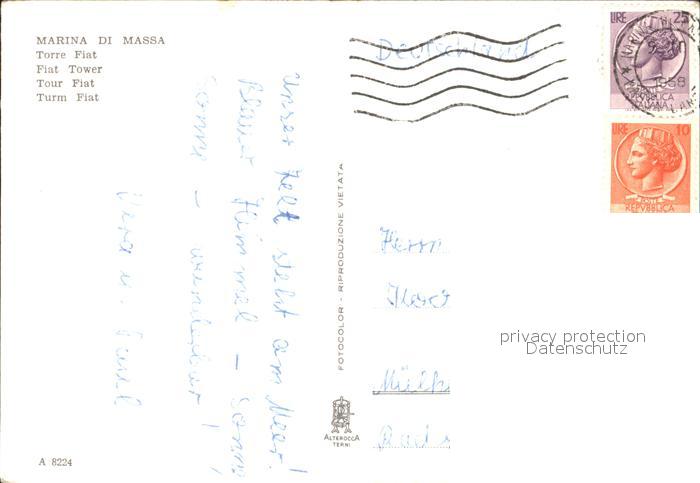 MARINA DI MASSA
Torre Fiat
Fiat Tower
Tour Fiat
Turm Fiat
Deutschland
LIRE 25
1968
REPUBBLICA
ITALIANA
LIRE 10
POSTE
REPVBBLICA
Unser Zelt steht am Meer!
Blauer Himmel – Sonne,
Sonne – wunderbar!
u.
FOTOCOLOR - RIPRODUZIONE VIETATA
Herrn
privacy protection
Datenschutz
ALTEROCCA
TERNI
A 8224